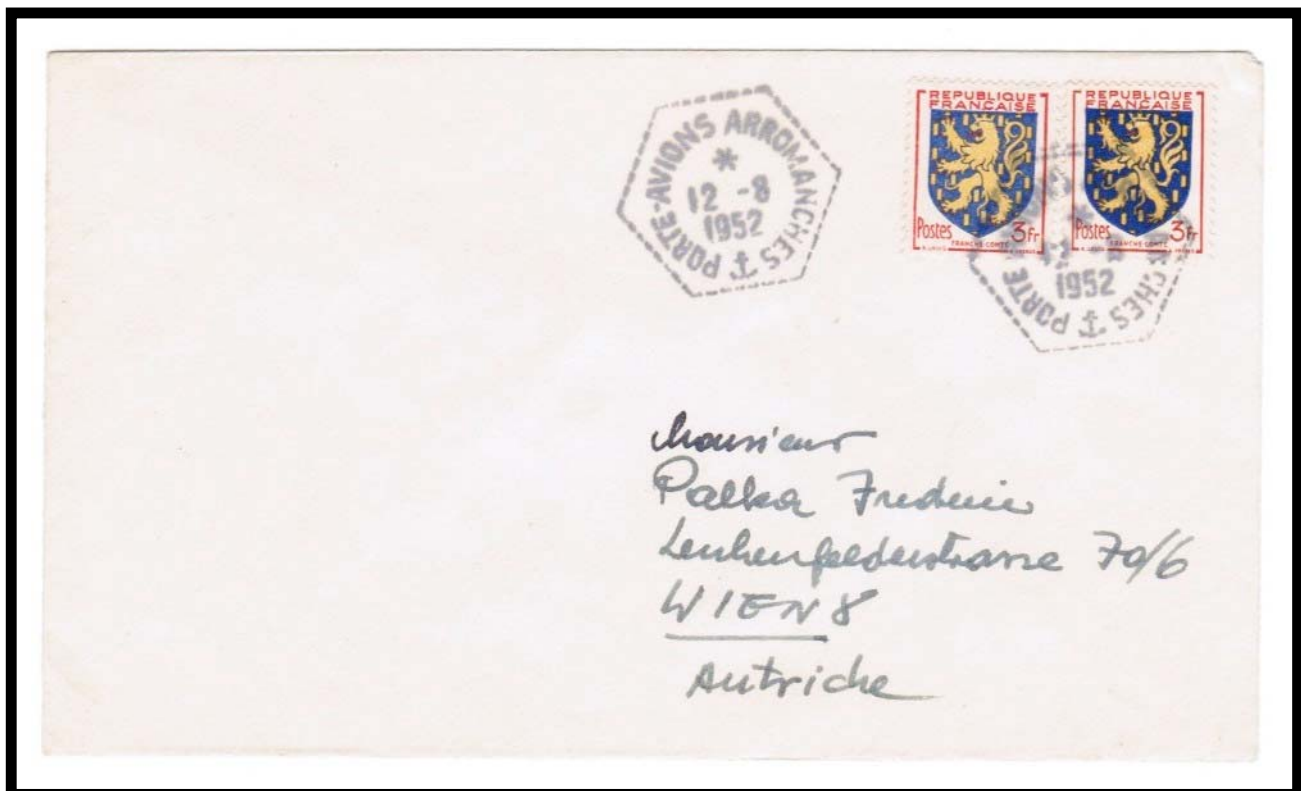 PORTE-AVIONS ARROMANCHES
*
12 -8
1952
REPUBLIQUE
FRANÇAISE
Postes 3fr
FRANCHE-COMTÉ
REPUBLIQUE
FRANÇAISE
Postes 3fr
FRANCHE-COMTÉ
PORTE
CHES
1952
Monsieur
Palka Frederic
Lerchenfelderstrasse 70/6
WIEN 8
Autriche